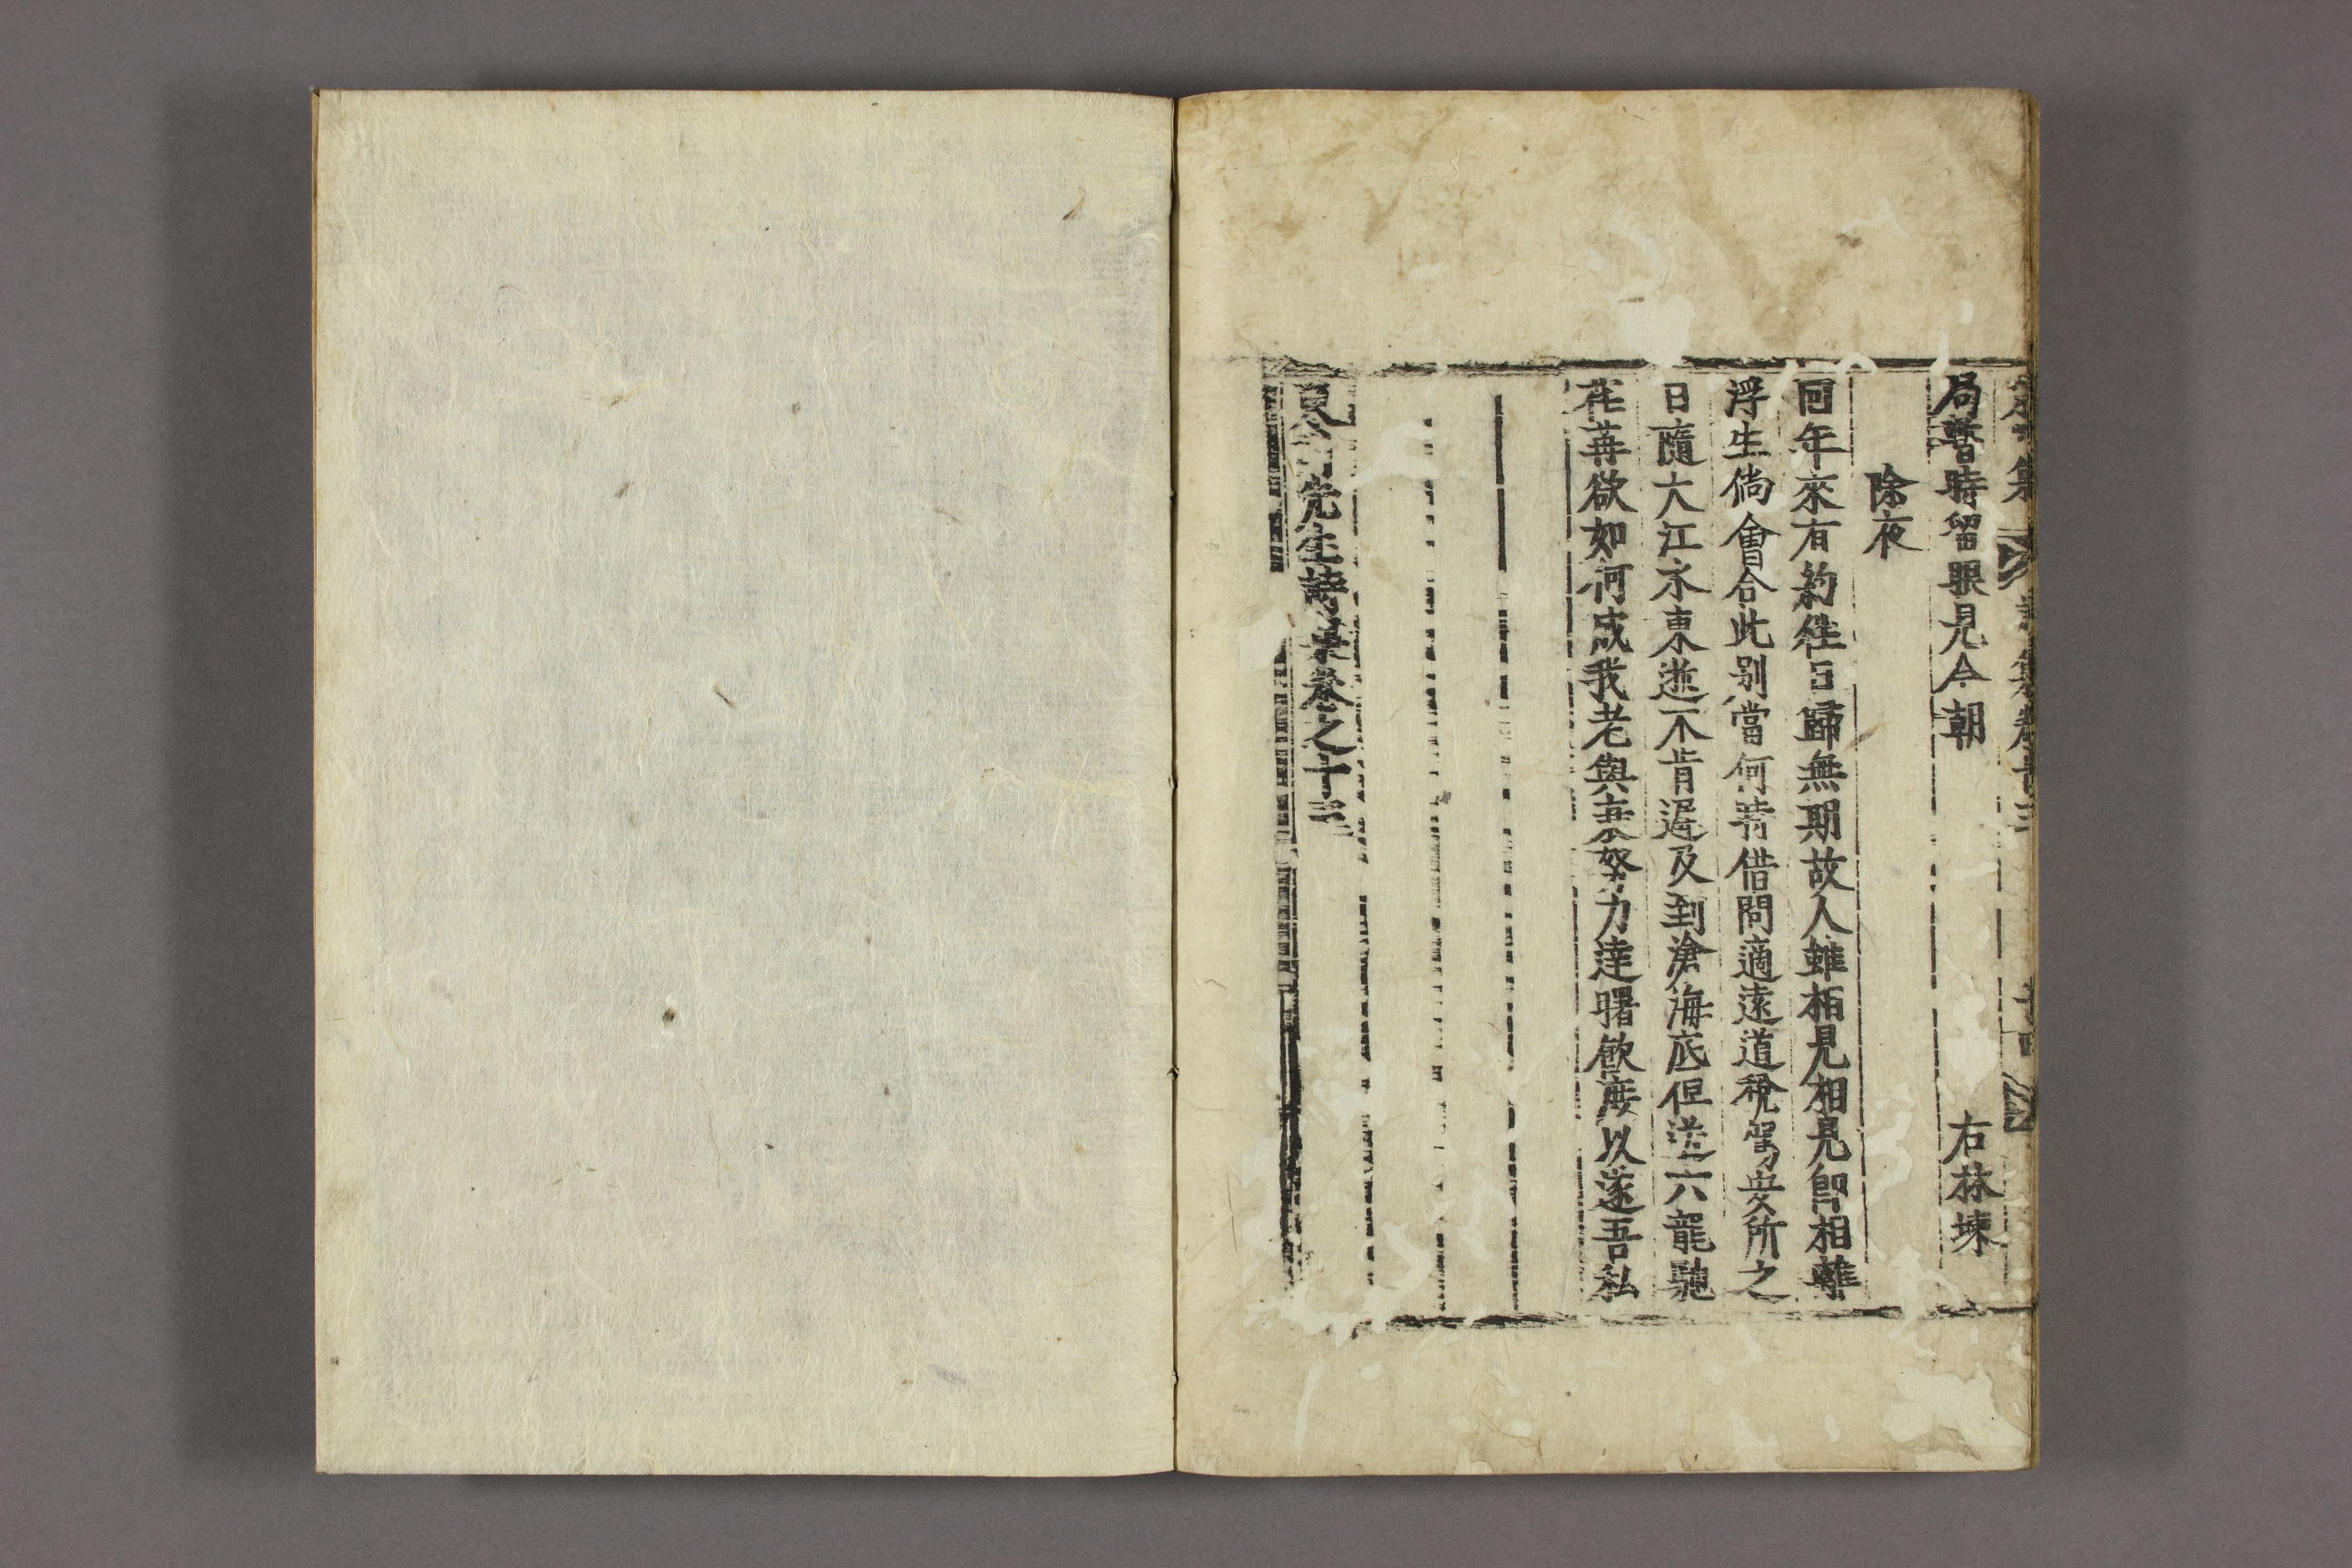 局暫時留眼見今朝　右林塘
除夜
回年來有約往日歸無期故人雖相見相見卽相離
浮生倘會合此別當何時借問適遠道稅駕安所之
日隨大江水東逝不肯遲及到滄海底但送六龍馳
荏苒欲如何成我老與衰努力達曙飮庶以遂吾私
先生詩集卷之十三